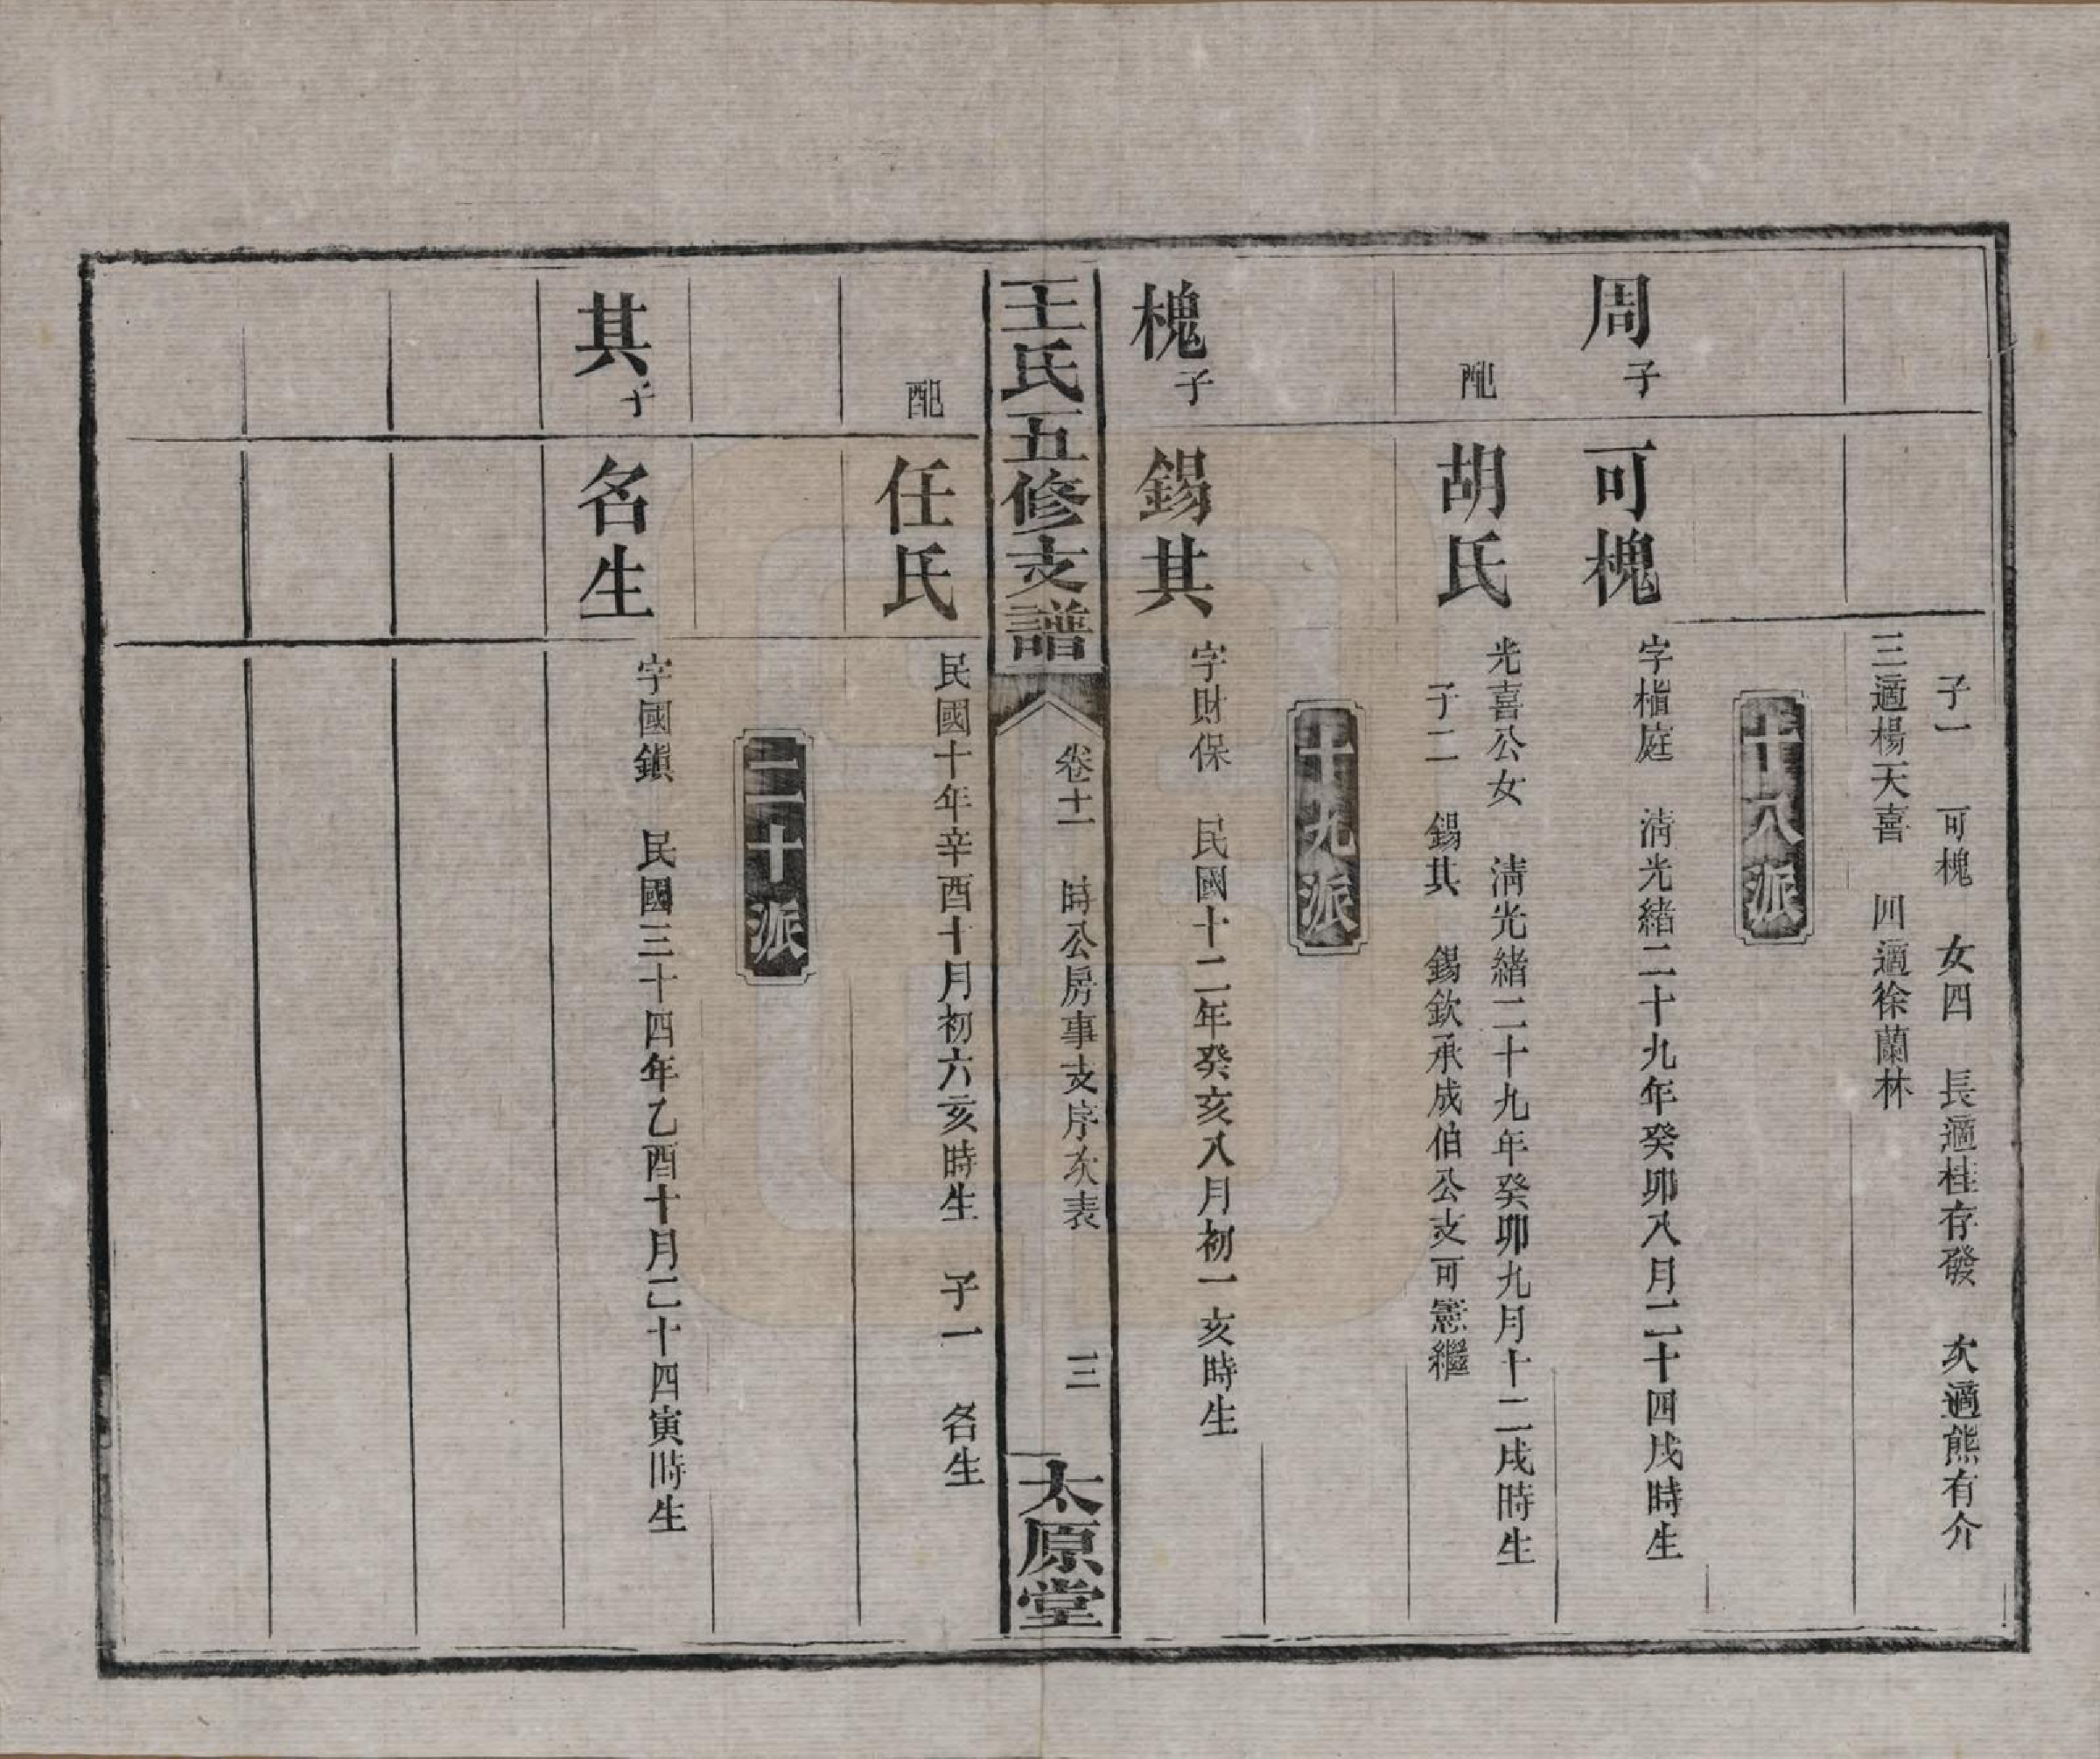 子一　可槐　女四　長適桂存發　次適熊有介
三適楊天喜　四適徐蘭林
十八派
周子　可槐　字楷庭　清光緒二十九年癸卯八月二十四戌時生
配　胡氏　光喜公女　清光緒二十九年癸卯九月十二戌時生
子二　錫其　錫欽承成伯公支可憲繼
十九派
槐子　錫其　字財保　民國十二年癸亥八月初一亥時生
王氏五修支譜　卷十一　時公房事支序次表　三　太原堂
配　任氏　民國十年辛酉十月初六亥時生　子一　名生
二十派
其子　名生　字國鎖　民國三十四年乙酉十月二十四寅時生